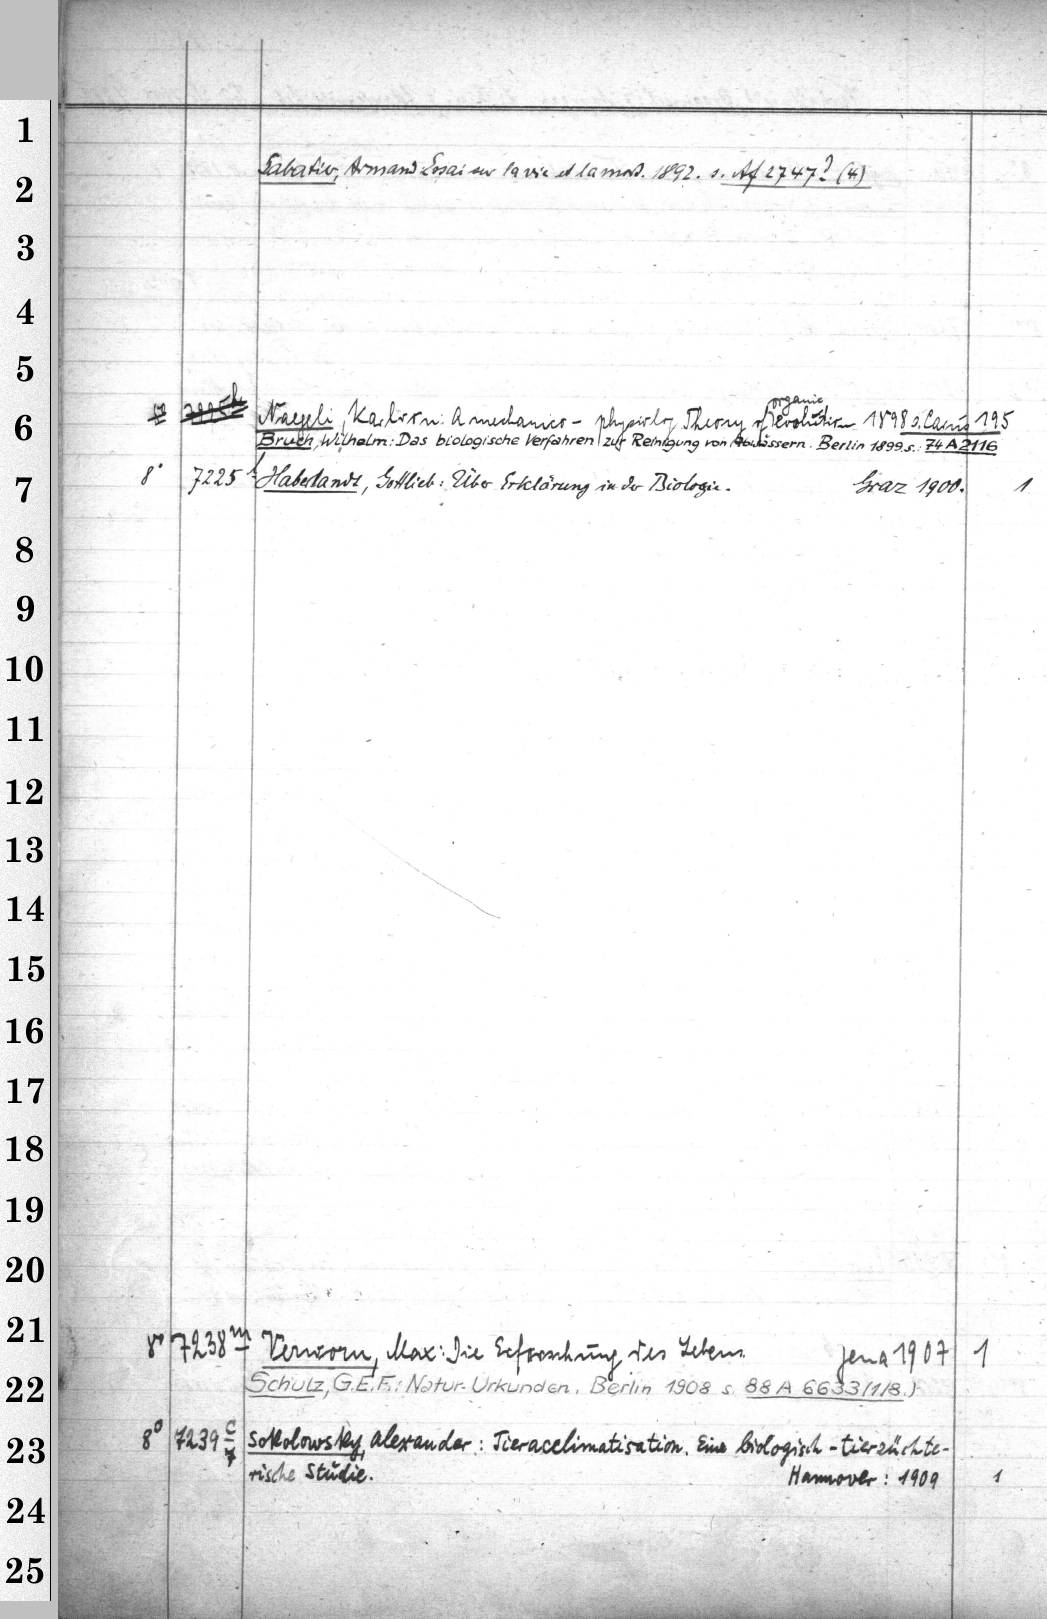 1
2 Sabatier, Armand: Essai sur la vie et la mort. 1892. s. Af 2747? (4)
3
4
5
6 Naegeli, Karl von: A mechanico-physiolog. Theory of organic evolution 1898 s. 195
Bruch, Wilhelm: Das biologische Verfahren zur Reinigung von Abwässern. Berlin 1899. s.: 74 A 2116
7 8° 7225 Haberlandt, Gottlieb: Über Erklärung in der Biologie. Graz 1900. 1
8
9
10
11
12
13
14
15
16
17
18
19
20
21 8° 7238 m Verworn, Max: Die Erforschung des Lebens. Jena 1907 1
22 Schulz, G.E.F.: Natur-Urkunden. Berlin 1908 s. 88 A 6633(1/8.)
23 8° 7239 c Sokolowsky, Alexander: Tieracclimatisation. Eine biologisch-tierzüchte-
rische Studie. Hannover: 1909 1
24
25